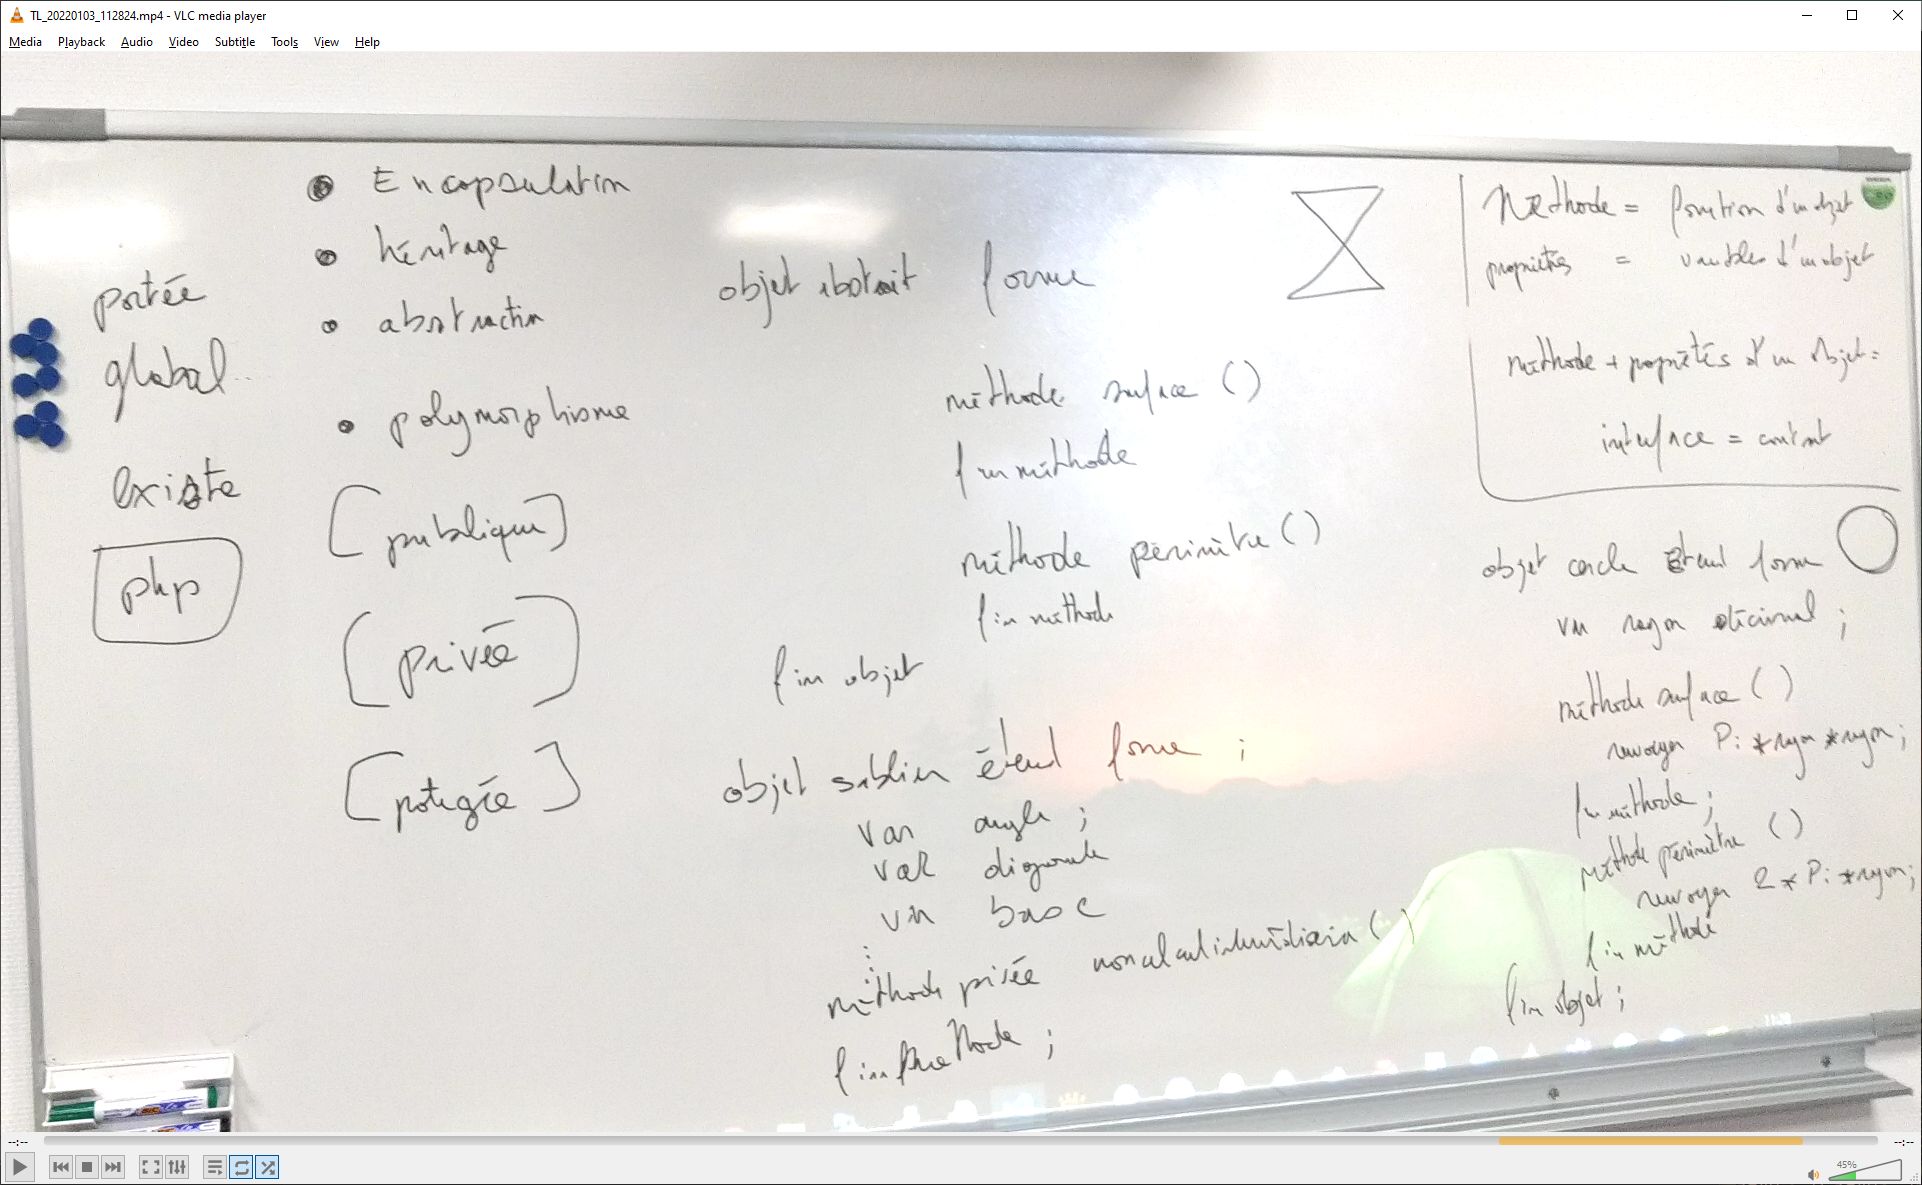 TL_20220103_112824.mp4 - VLC media player
Media Playback Audio Video Subtitle Tools View Help
portée
global
existe
php
Encapsulation
héritage
abstraction
polymorphisme
[publique]
[privée]
[protegée]
objet abstrait forme
méthode surface ()
fin méthode
méthode périmètre ()
fin méthode
fin objet
objet sablier étend forme ;
var angle ;
var diagonale
var base
méthode privée
fin methode ;
Méthode = fonction d'un objet
propriétés = variables d'un objet
méthode + propriétés d'un objet =
interface = contrat
objet cercle étend forme
var rayon décimal ;
méthode surface ()
renvoyer Pi * rayon * rayon ;
fin méthode ;
méthode périmètre ()
renvoyer 2 * Pi * rayon ;
fin méthode
fin objet ;
--:--
--:--
45%